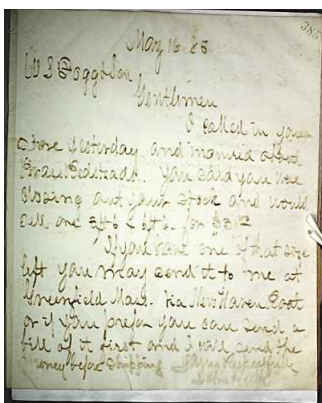 385
May 16 85
W S Fogg & Son
Gentlemen
I called in your
store yesterday and inquired about
Brass Bedsteads. You said you were
closing out your stock and would
sell one for
If you have one of that size
left you may send it to me at
Greenfield Mass. via New Haven Boat
or if you prefer you can send a
bill of it first and I will send the
money before shipping Respectfully